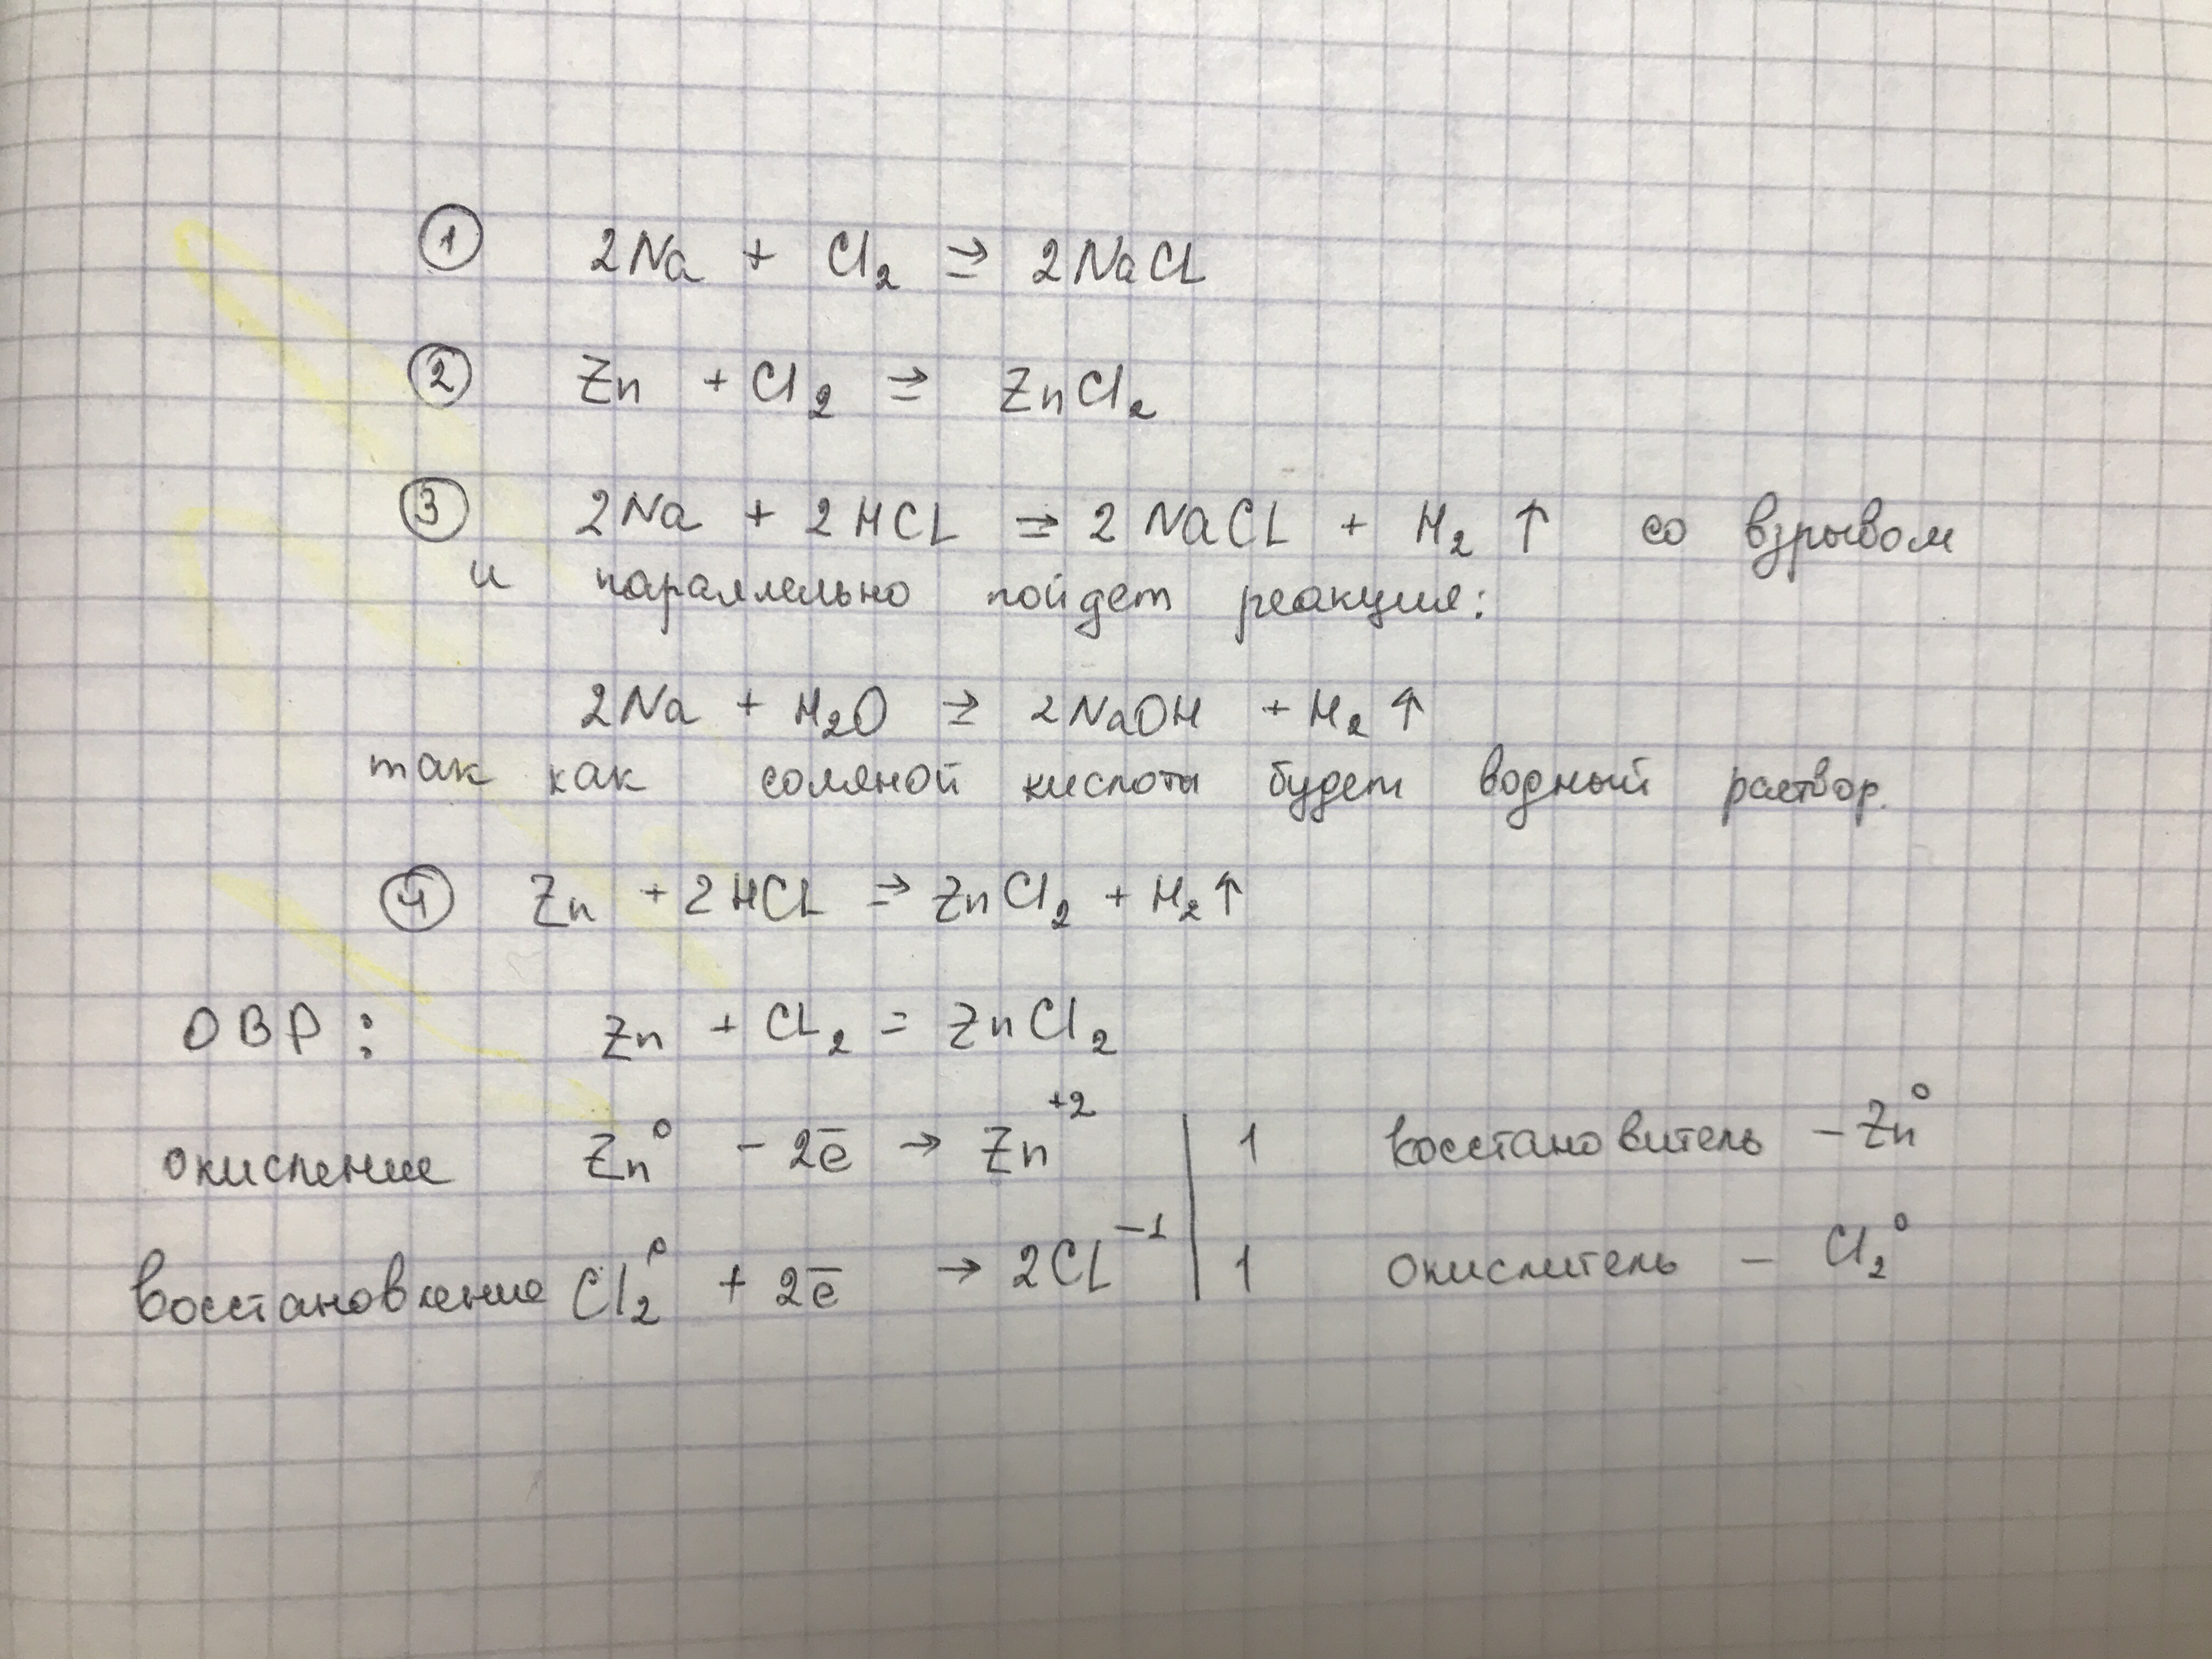 ① 2Na + Cl₂ ⇒ 2NaCl
② Zn + Cl₂ ⇒ ZnCl₂
③ 2Na + 2HCl ⇒ 2NaCl + H₂ ↑ со взрывом
и параллельно пойдет реакция:
2Na + H₂O ⇒ 2NaOH + H₂ ↑
так как соляной кислоты будет водный раствор.
④ Zn + 2HCl ⇒ ZnCl₂ + H₂ ↑
ОВР:
Zn + Cl₂ = ZnCl₂
окисление Zn⁰ - 2ē → Zn⁺² | 1 восстановитель - Zn⁰
восстановление Cl₂⁰ + 2ē → 2Cl⁻¹ | 1 окислитель - Cl₂⁰